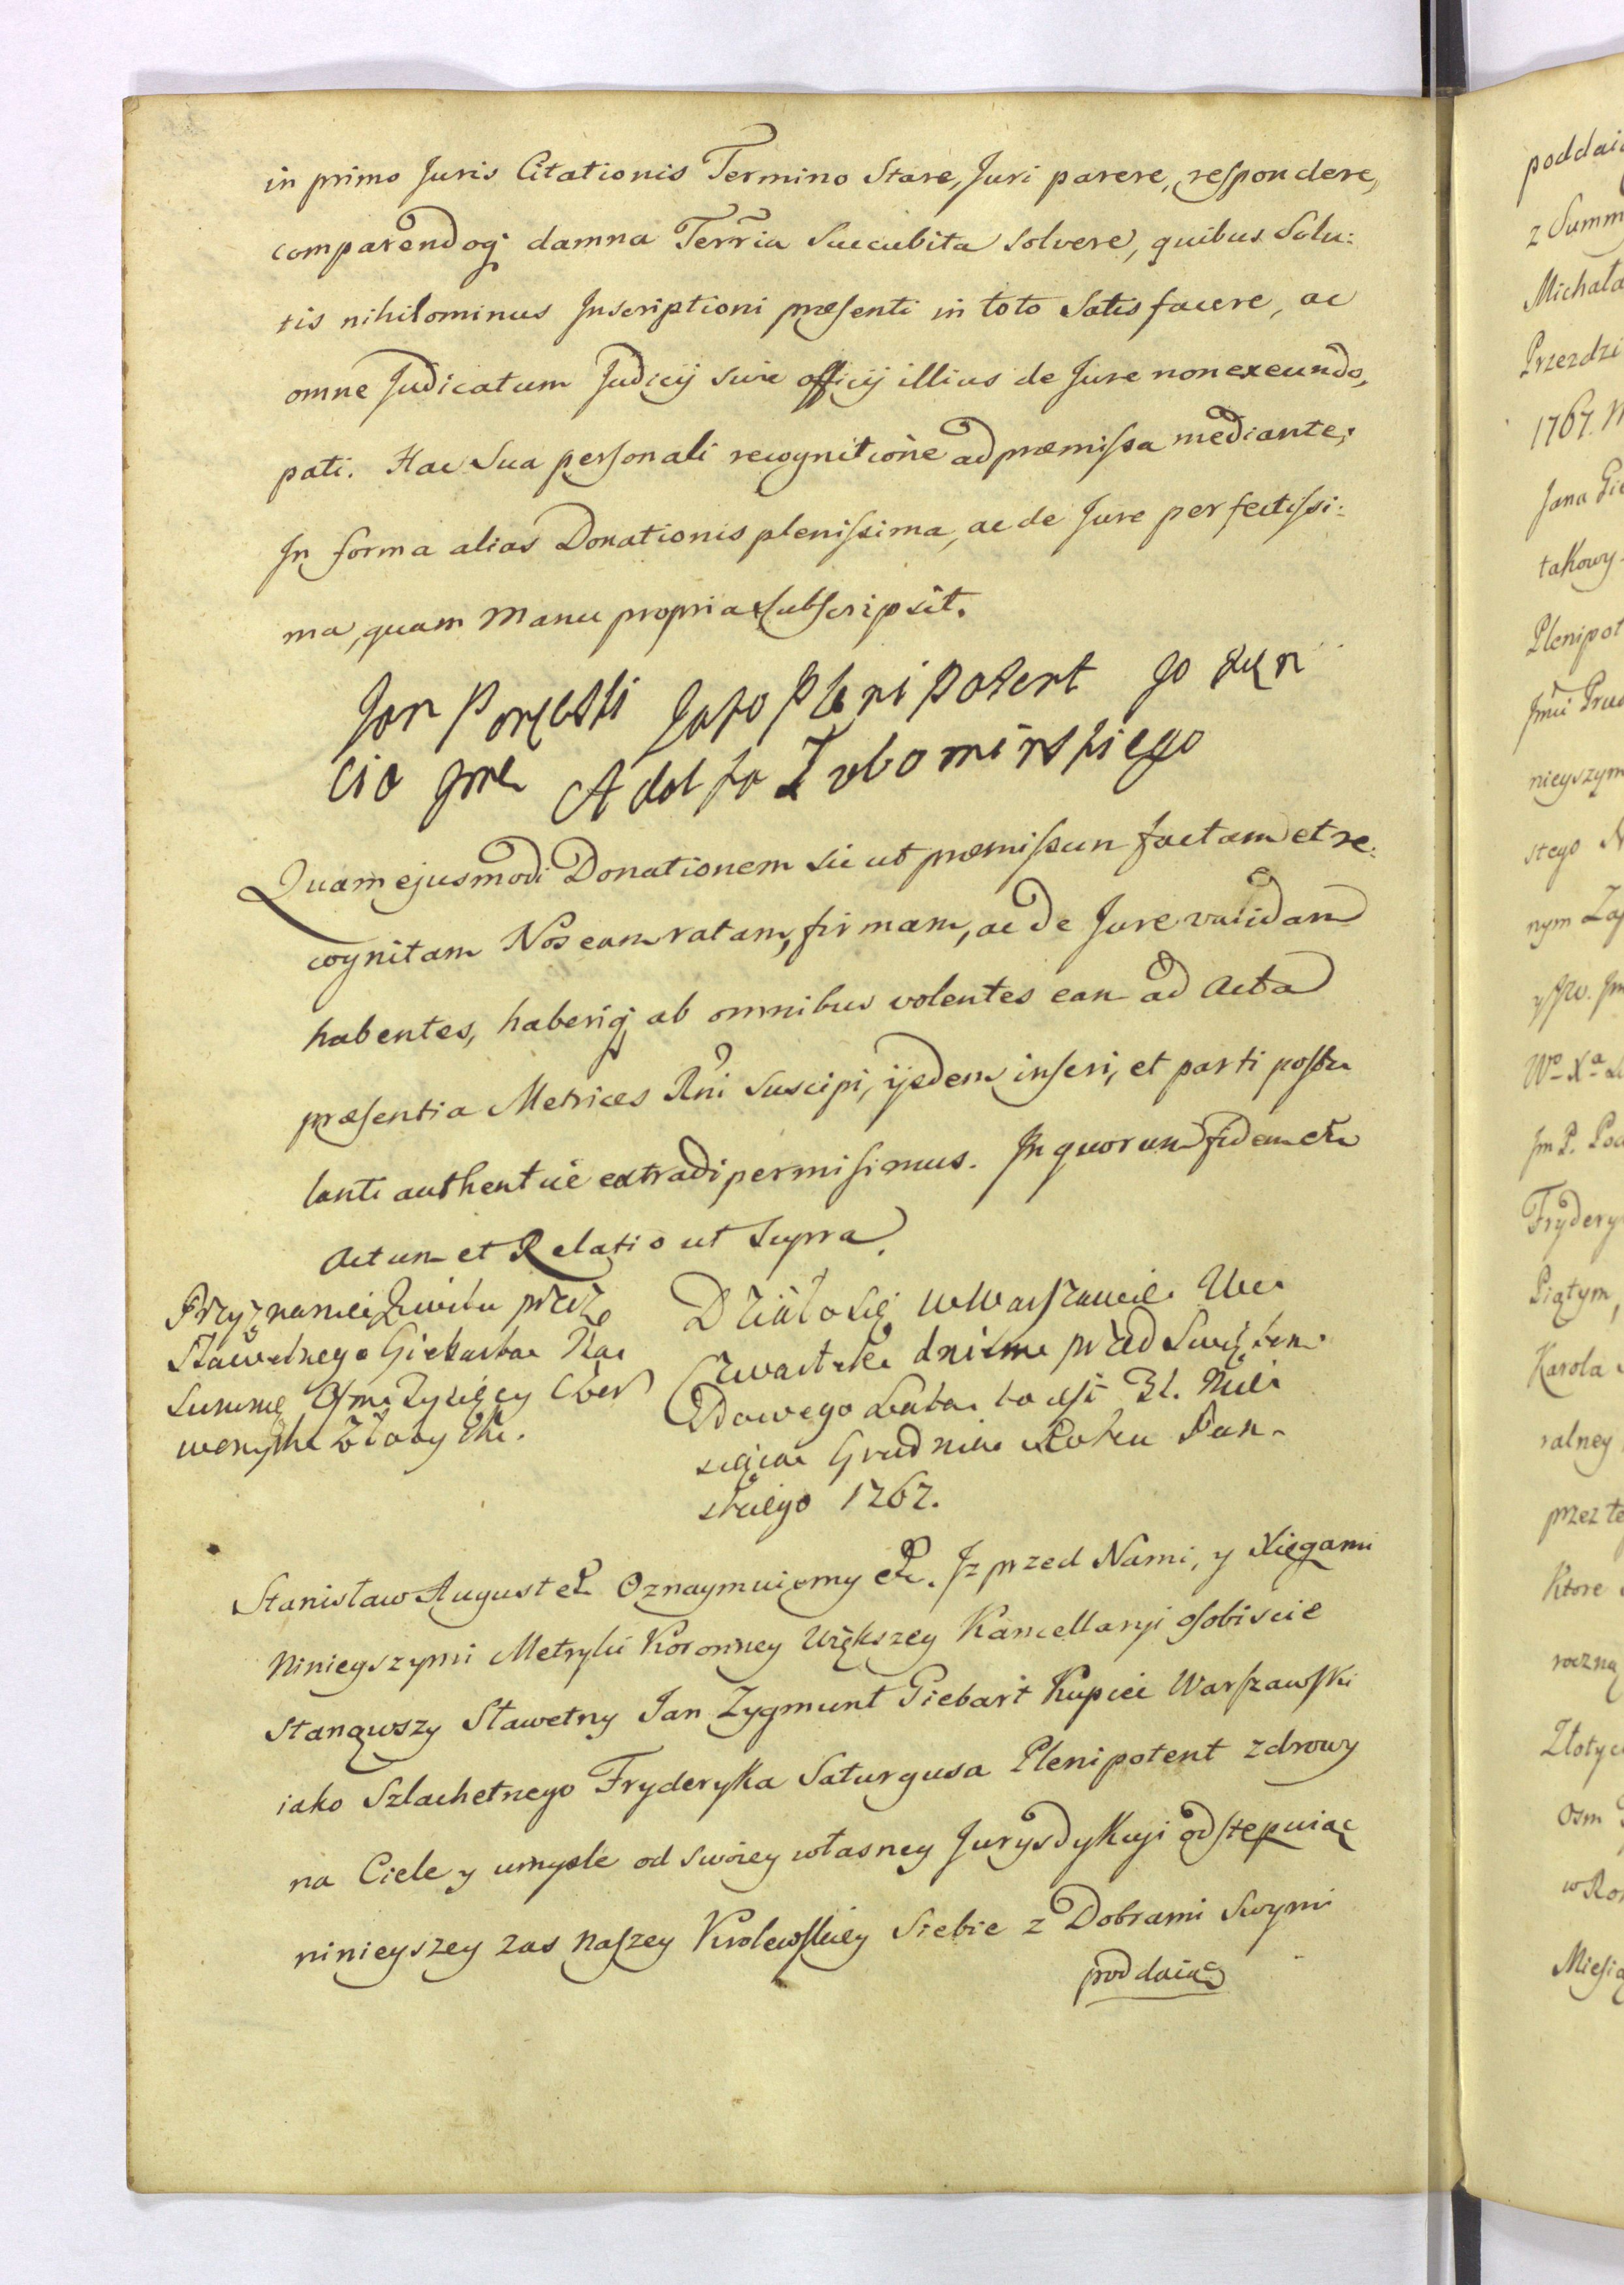 in primo Juris Citationis Termino Stare, Juri parere, respondere,
comparendoq; damna Terr̃ia Succubita solvere, quibus Solu:
tis nihilominus Inscriptioni præsenti in toto Satisfacere, ac
omne Judicatum Judicij sive officij illius de Jure non exeundo,
pati. Hac Sua personali recognitione ad præmissa mediante;
In forma alias Donationis plenissima, ac de Jure perfectissi:
ma, quam Manu propria subscripsit.
Jan Jako Plenipotent Jo
cia Jme Adolfa Lubomirskiego
Quam ejusmodi Donationem sic ut præmissum factam et re:
cognitam Nos eam ratam, firmam, ac de Jure validam
habentes, haberiq; ab omnibus volentes eam ad Acta
præsentia Metrices Rñi Suscipi, ijsdem inseri, et parti postu
lanti authentice extradi permisimus. In quorum fidem etc
Actum et Relatio ut Supra.
Przyznanie Kwitu przez
Sławetnego Giebarta Na
Summę Osm Tysięcy Czer
wonych Złotych.
Działo się w Warszawie We
Czwartek dniem przed Swiętem
Nowego Lata to iest 31. Mie
siąca Grudnia Roku Pan-
skiego 1767.
Stanisław August etc Oznaymuiemy etc. Iz przed Nami, y Xięgami
Ninieyszymi Metryki Koronney Większey Kancellaryi osobiscie
Stanąwszy Sławetny Jan Zygmunt Giebart Kupiec Warszawski
iako Szlachetnego Fryderyka Saturgusa Plenipotent zdrowy
na Ciele y umysle od swoiey własney Jurysdykcyi odstępuiąc
ninieyszey zas Naszey Krolewskiey Siebie z Dobrami Swymi
poddaiąc
poddaią
z Summ
Michała
Przezdzi
1767. M
Jana Gie
takowy
Plenipot
nieyszym
stego N
nym Zap
Jm P. Pod
Fryderyk
Piątym,
Karola
ralney
przez te
Ktore
roczną
Złotyc
Osm
w Ro
Miesią